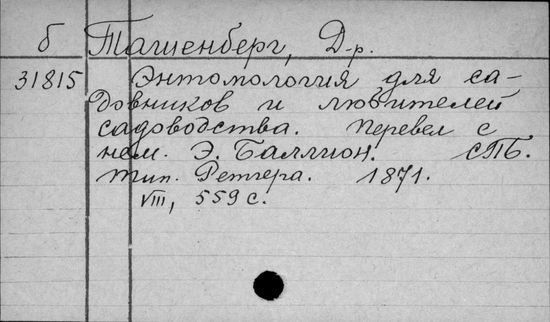 б Ташенберг, Д-р.
31815 Энтомология для са-
довников и любителей
садоводства. Перевел с
нем. Э. Баллион. СПБ.
тип. Ретгера. 1871.
VIII, 559 с.